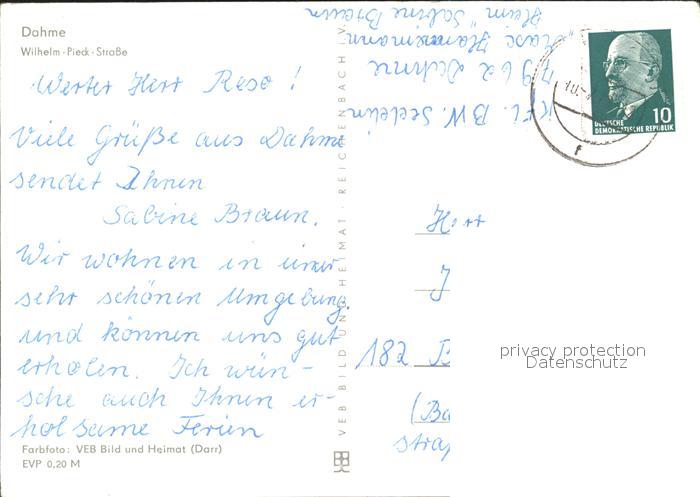 Dahme
Wilhelm-Pieck-Straße
Werter Herr Reso!
Viele Grüße aus Dahme
sendet Ihnen
Sabine Braun.
Wir wohnen in einer
sehr schönen Umgebung
und können uns gut
erholen. Ich wün-
sche auch Ihnen er-
holsame Ferien
Farbfoto: VEB Bild und Heimat (Darr)
EVP 0,20 M
VEB BILD UND HEIMAT · REICHENBACH i. V.
K Fl. BW.
7962 Dahme
Heim Sabine Braun
10
DEUTSCHE
DEMOKRATISCHE REPUBLIK
Herr
J
182 B
(Ba
straß
privacy protection
Datenschutz